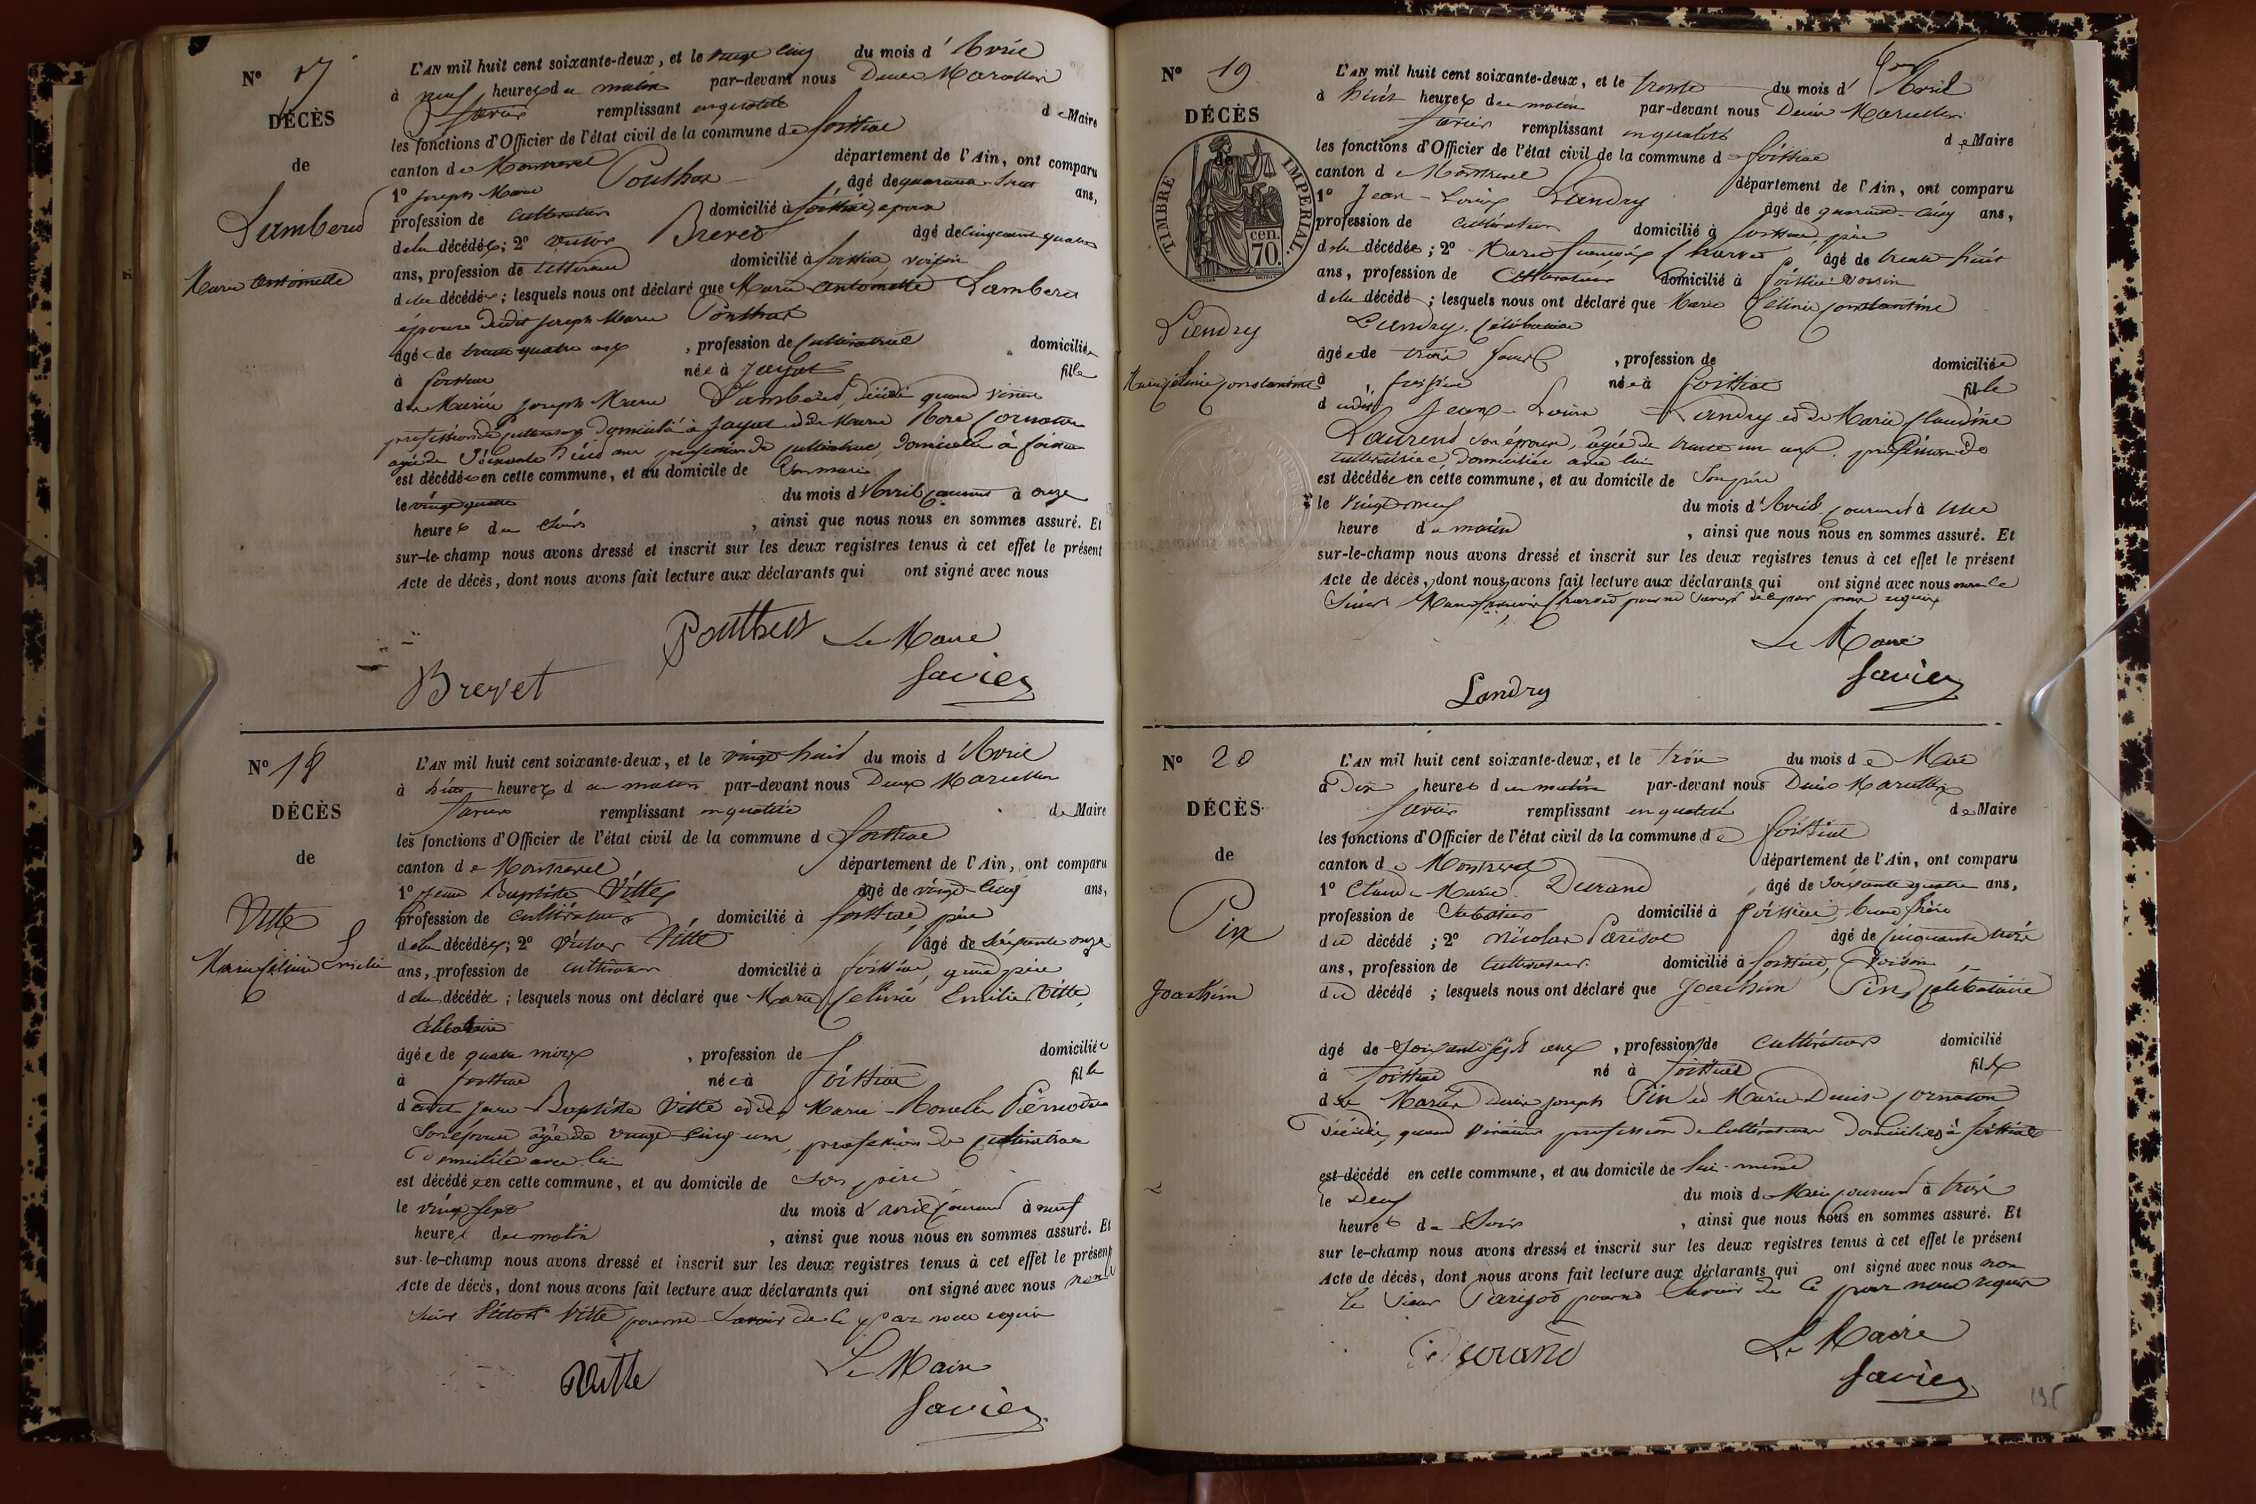 N° 17
DÉCÈS
de
Lambend
Marie antoinette
L'AN mil huit cent soixante-deux, et le vingt cinq du mois d' Avril
à neuf heures du matin par-devant nous Denis Marcellin
Favier remplissant en qualité de Maire
les fonctions d'Officier de l'état civil de la commune de foissiat
canton de Montrevel département de l'Ain, ont comparu
1° Joseph Marie Ponthus âgé de quarante ans,
profession de cultivateur domicilié à foissiat, époux
de la décédée; 2° Victor Brevet âgé de cinquante quatre
ans, profession de domicilié à foissiat, voisin
de la décédée; lesquels nous ont déclaré que Marie antoinette
épouse dudit joseph Marie Ponthus
âgée de trente quatre ans, profession de cultivatrice domiciliée
à foissiat née à jayat fille
de Marie joseph Marie décédé quand vivait
profession de cultivateur domicilié à jayat et de Marie
profession de cultivatrice, domiciliée à foissiat
est décédée en cette commune, et au domicile de son mari
le vingt quatre du mois d'Avril courant à onze
heures du soir, ainsi que nous nous en sommes assuré. Et
sur-le-champ nous avons dressé et inscrit sur les deux registres tenus à cet effet le présent
Acte de décès, dont nous avons fait lecture aux déclarants qui ont signé avec nous
Ponthus Le Maire
Brevet Favier
N° 18
DÉCÈS
de
Vitte
Marie Céline Emilie
L'AN mil huit cent soixante-deux, et le vingt huit du mois d'Avril
à huit heures du matin par-devant nous Denis Marcellin
Favier remplissant en qualité de Maire
les fonctions d'Officier de l'état civil de la commune de foissiat
canton de Montrevel département de l'Ain, ont comparu
1° Jean Baptiste Vitte âgé de vingt-cinq ans,
profession de cultivateur domicilié à foissiat, père
de la décédée; 2° Victor Vitte âgé de soixante onze
ans, profession de cultivateur domicilié à foissiat, grand père
de la décédée; lesquels nous ont déclaré que Marie Céline Emilie Vitte,
célibataire
âgée de quatre mois, profession de domiciliée
à foissiat née à foissiat fille
dudit Jean-Baptiste Vitte et de Marie
son épouse âgée de vingt-cinq ans, profession de cultivatrice
domiciliée avec lui
est décédée en cette commune, et au domicile de son père
le vingt sept du mois d'avril courant à neuf
heures du matin, ainsi que nous nous en sommes assuré. Et
sur-le-champ nous avons dressé et inscrit sur les deux registres tenus à cet effet le présent
Acte de décès, dont nous avons fait lecture aux déclarants qui ont signé avec nous non le
sieur Victor Vitte pour ne savoir de ce par nous requis
Vitte Le Maire
Favier
N° 19
DÉCÈS
de
TIMBRE IMPÉRIAL.
70. cen.
Landry
Marie Céline constantine
L'AN mil huit cent soixante-deux, et le trente du mois d'Avril
à huit heures du matin par-devant nous Denis Marcellin
Favier remplissant en qualité de Maire
les fonctions d'Officier de l'état civil de la commune de foissiat
canton de Montrevel département de l'Ain, ont comparu
1° Jean-Louis Landry âgé de quarante-cinq ans,
profession de cultivateur domicilié à foissiat, père
de la décédée; 2° Marie françois âgé de trente huit
ans, profession de cultivateur domicilié à foissiat voisin
de la décédé; lesquels nous ont déclaré que Marie Céline constantine
Landry, célibataire
âgée de trois jours, profession de domiciliée
à foissiat née à foissiat fille
dudit Jean-Louis Landry et de Marie Claudine
Laurend son épouse, âgée de trente un ans, profession de
cultivatrice, domiciliée avec lui
est décédée en cette commune, et au domicile de son père
le vingt neuf du mois d'Avril courant à une
heure du matin, ainsi que nous nous en sommes assuré. Et
sur-le-champ nous avons dressé et inscrit sur les deux registres tenus à cet effet le présent
Acte de décès, dont nous avons fait lecture aux déclarants qui ont signé avec nous non le
Sieur Marie françois pour ne savoir de ce par nous requis
Le Maire
Landry Favier
N° 20
DÉCÈS
de
Pin
Joachim
L'AN mil huit cent soixante-deux, et le trois du mois de Mai
à Dix heures du matin par-devant nous Denis Marcellin
Favier remplissant en qualité de Maire
les fonctions d'Officier de l'état civil de la commune de foissiat
canton de Montrevel département de l'Ain, ont comparu
1° Claude Marie Durand âgé de soixante quatre ans,
profession de domicilié à foissiat, beau frère
du décédé; 2° Nicolas Parisot âgé de cinquante trois
ans, profession de cultivateur domicilié à foissiat, voisin
du décédé; lesquels nous ont déclaré que Joachim Pin, célibataire
âgé de soixante sept ans, profession de cultivateur domicilié
à foissiat né à foissiat fils
de Marie Denis joseph Pin et Marie Denise
décédés, quand vivaient profession de cultivateurs domiciliés à foissiat
est décédé en cette commune, et au domicile de lui-même
le Deux du mois de Mai courant à trois
heures du Soir, ainsi que nous nous en sommes assuré. Et
sur le-champ nous avons dressé et inscrit sur les deux registres tenus à cet effet le présent
Acte de décès, dont nous avons fait lecture aux déclarants qui ont signé avec nous non
le sieur Parisot pour ne savoir de ce par nous requis
Durand Le Maire
Favier
195